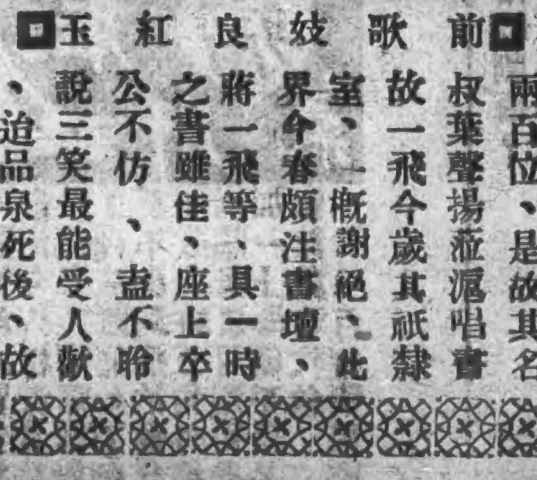 前歌妓良紅玉
兩百位、是故其名
叔葉聲揚蒞滬唱書
故一飛今歲其祇隸
室、一概謝絕、此
界今春頗注書壇、
蔣一飛等、具一時
之書雖佳、座上卒
公不仿、盍不聆
說三笑最能受人歡
、迨品泉死後、故